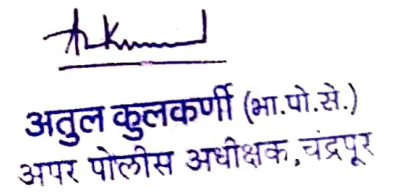 अतुल कुलकर्णी (भा.पो.से.)
अपर पोलीस अधीक्षक, चंद्रपूर